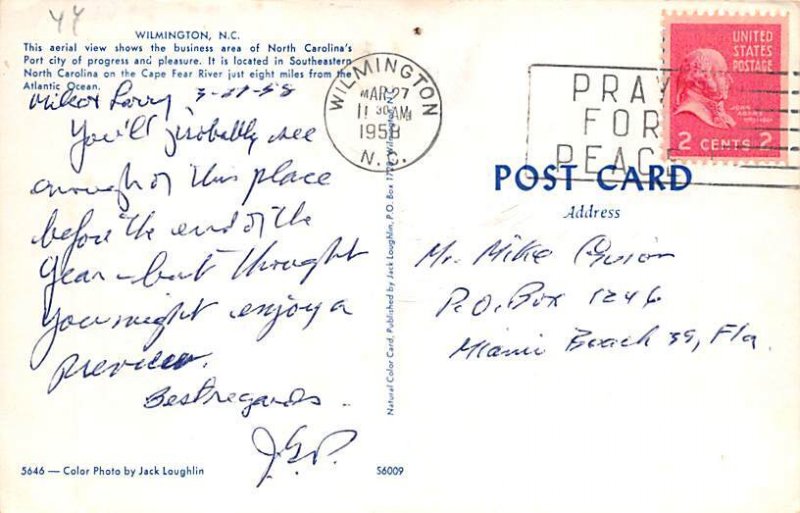 44
WILMINGTON, N.C.
This aerial view shows the business area of North Carolina's
Port city of progress and pleasure. It is located in Southeastern
North Carolina on the Cape Fear River just eight miles from the
Atlantic Ocean.
Mike & Larry, 3-27-58
You'll probably see
enough of this place
before the end of the
year - but thought
you might enjoy a
preview.
Best regards
J.G.P.
5646 — Color Photo by Jack Loughlin
56009
Natural Color Card, Published by Jack Loughlin, P.O. Box 1701, Wilmington, N.C.
WILMINGTON
MAR 27
11 30 AM
1958
N.C.
PRAY
FOR
PEACE
UNITED
STATES
POSTAGE
JOHN
ADAMS
2 CENTS 2
POST CARD
Address
Mr. Mike Guion
P.O. Box 1246
Miami Beach 39, Fla.